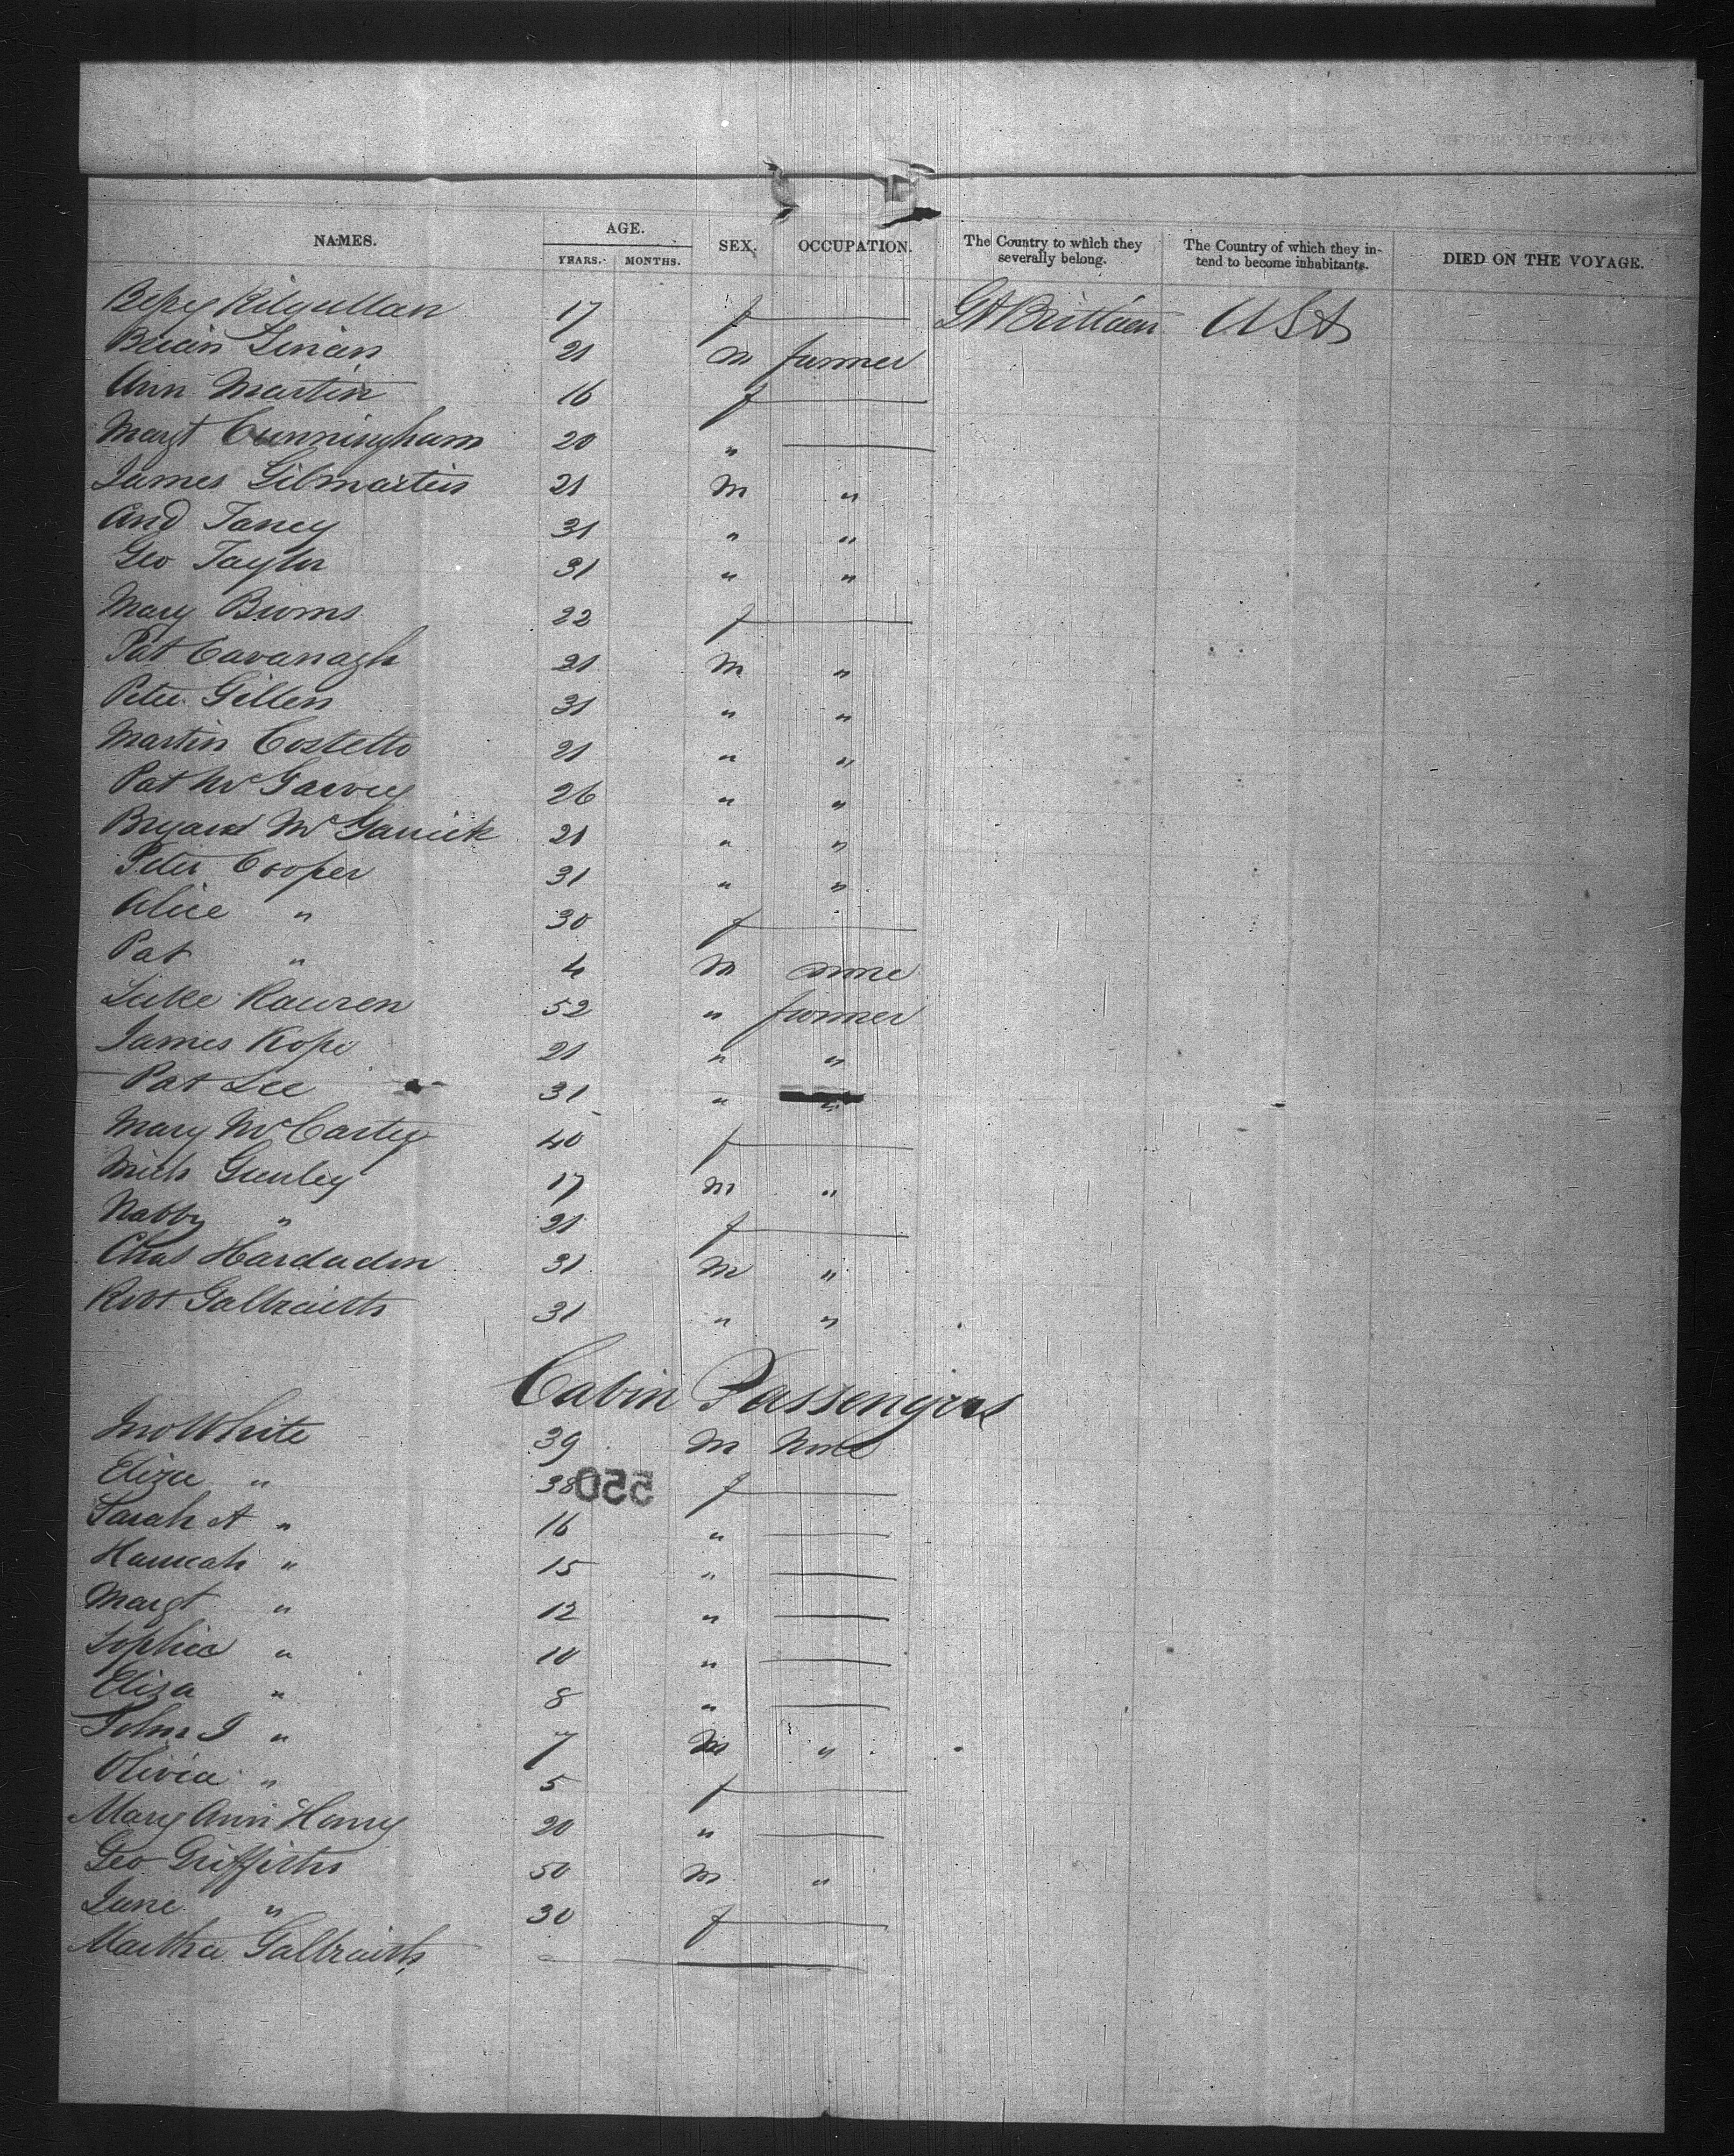 NAMES. AGE. SEX. OCCUPATION. The Country to which they severally belong. The Country of which they in- tend to become inhabitants. DIED ON THE VOYAGE.
YEARS. MONTHS.
Bessy Kilgullan 17 f — Gt Brittain USA
Brian Linian 21 m farmer
Ann Martin 16 f —
Margt Cunningham 20 " —
James Gilmartin 21 m "
And Taney 31 " "
Geo Taylor 31 " "
Mary Burns 22 f —
Pat Cavanagh 21 m "
Peter Gillen 31 " "
Martin Costello 21 " "
Pat McGarvey 26 " "
Bryard McGarrick 21 " "
Peter Cooper 31 " "
Alice " 30 f —
Pat " 4 m none
Luke Rauren 52 " farmer
James Kope 21 " "
Pat Lee 31 " "
Mary McCarty 40 f —
Mich Gunley 17 m "
Nabby " 21 f —
Chas Hardadon 31 m "
Robt Galbraith 31 " "
Cabin Passengers
Jno White 39 m None
Eliza " 38 f —
550
Sarah A " 16 " —
Hannah " 15 " —
Margt " 12 " —
Sophia " 10 " —
Eliza " 8 " —
John J " 7 m "
Olivia " 5 f —
Mary Ann Henry 20 " —
Geo Griffiths 50 m "
Jane " 30 f —
Martha Galbraith —